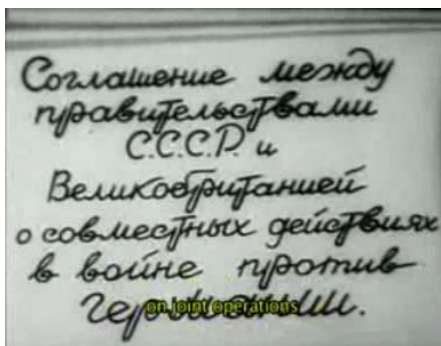 Соглашение между
правительствами
С.С.С.Р. и
Великобританией
о совместных действиях
в войне против
Германии.
on joint operations